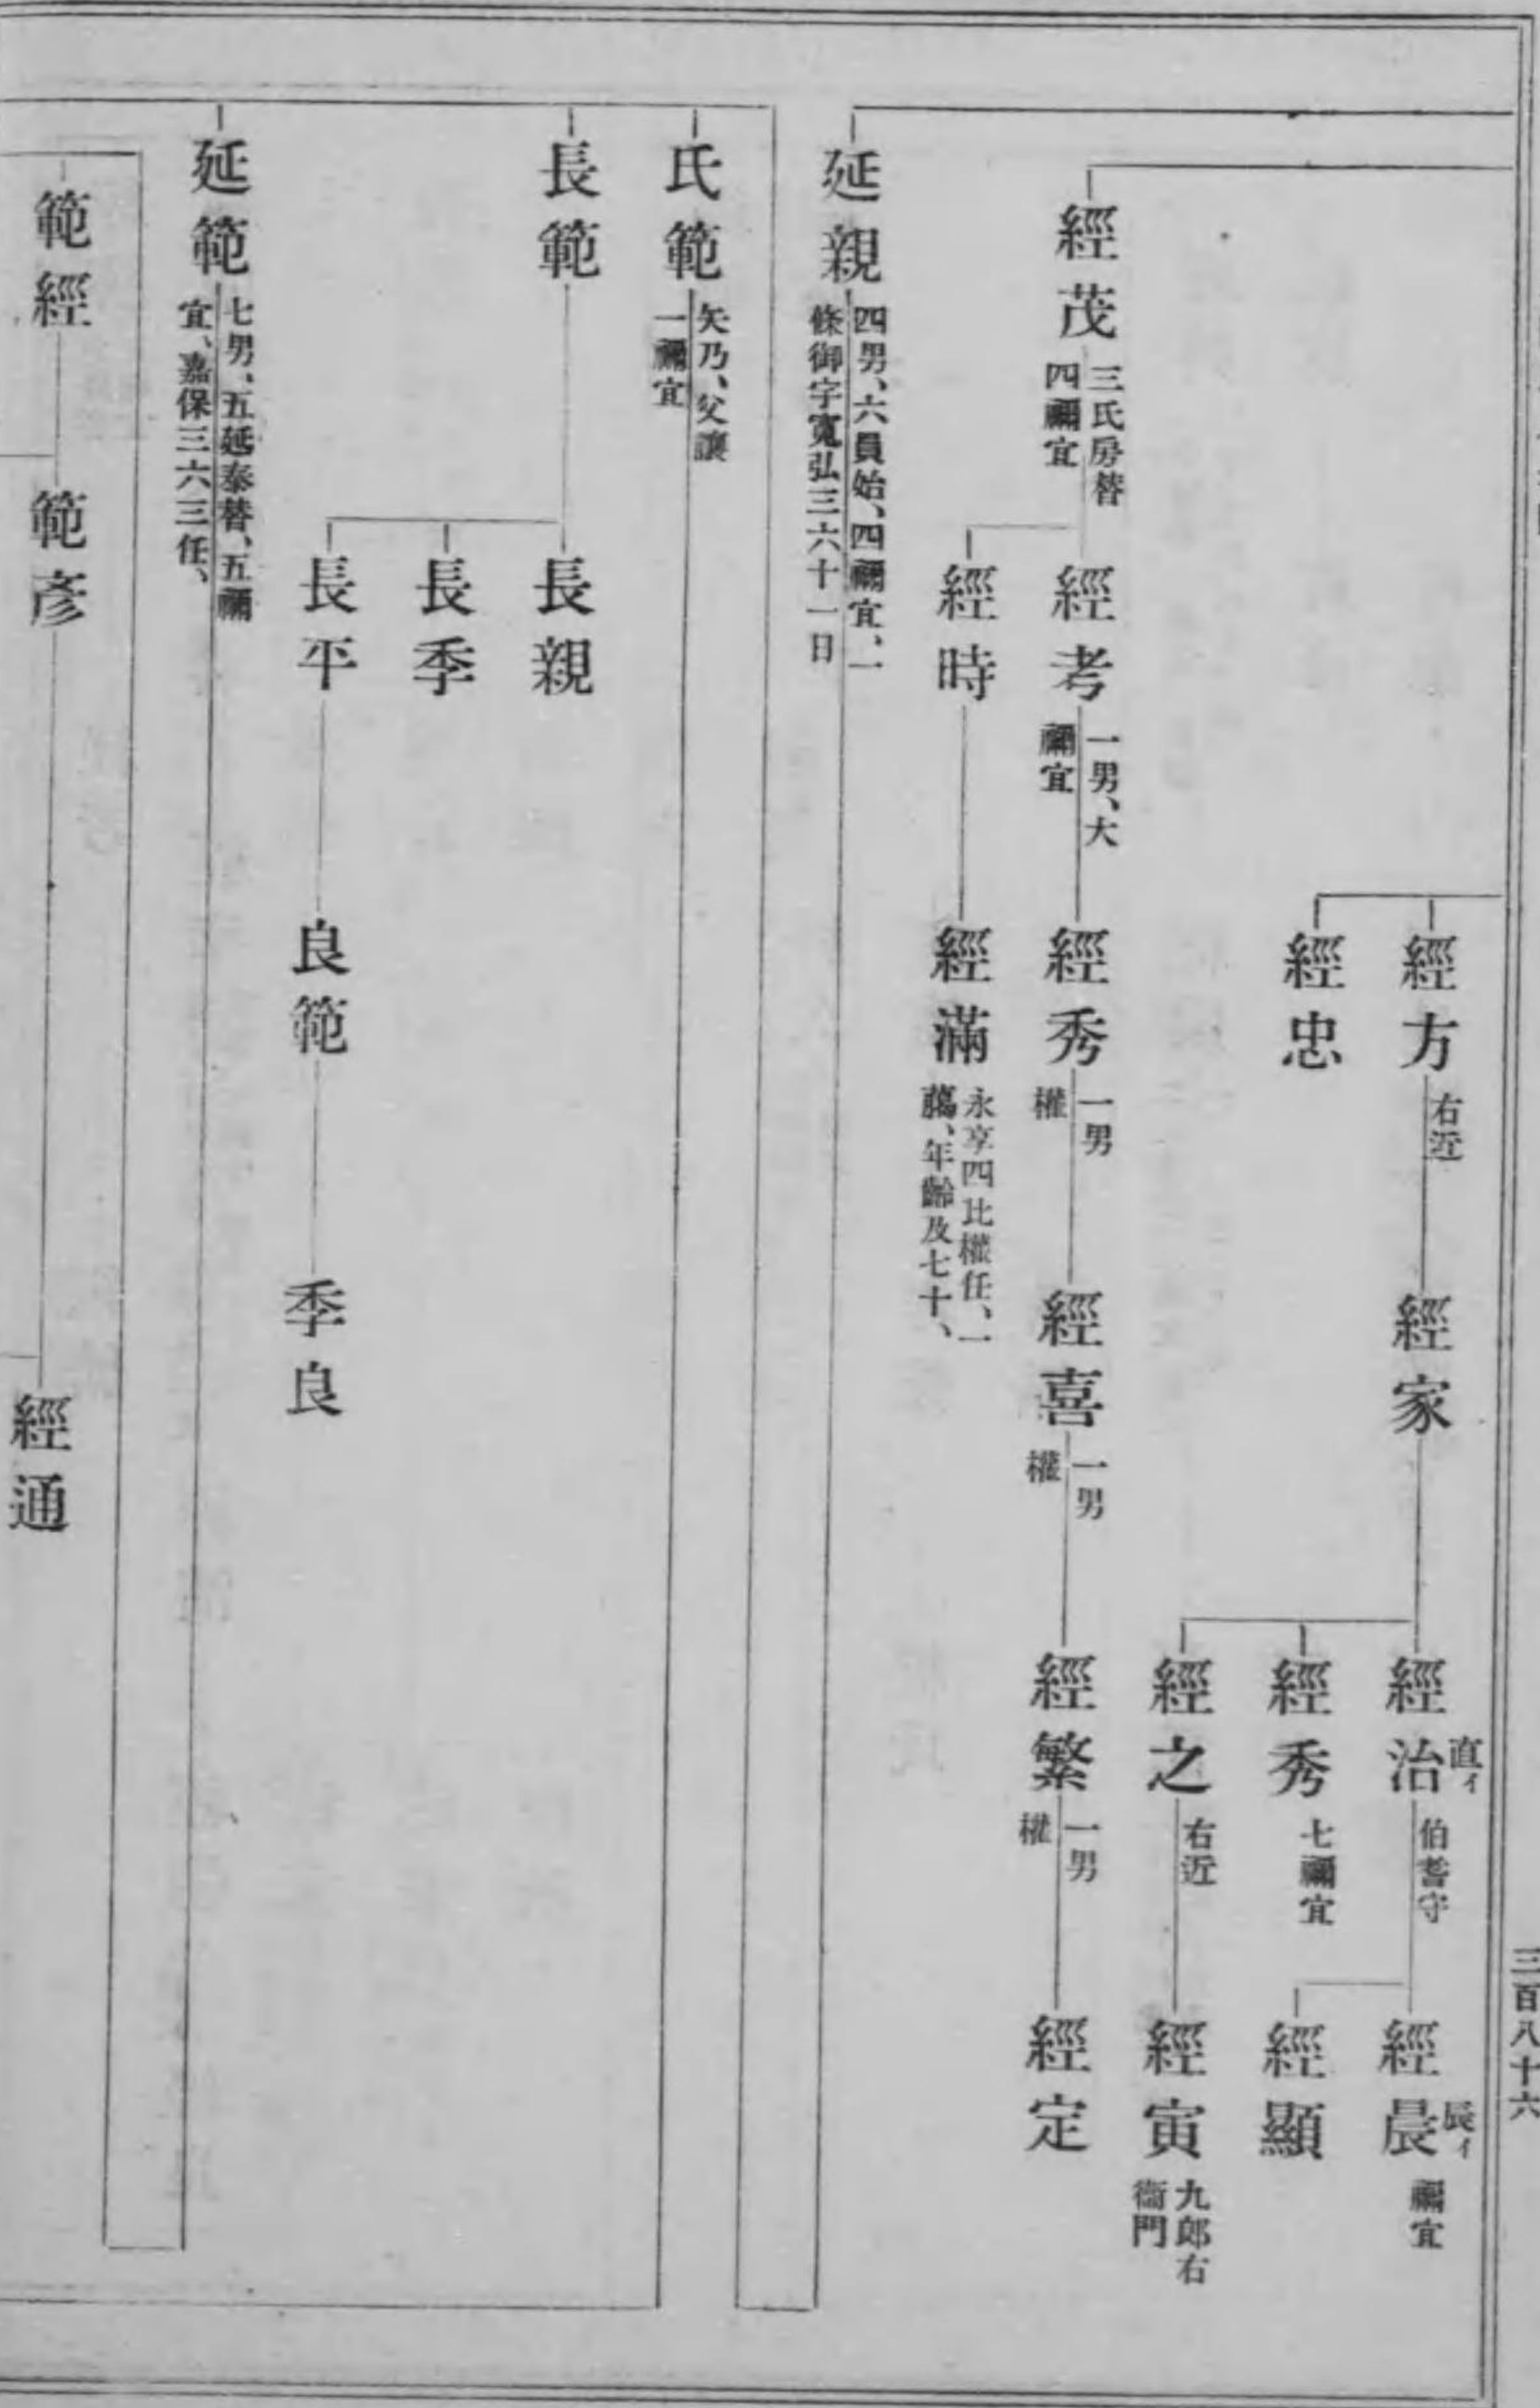 三百八十六
經方
右近
經家
經治
直イ
伯耆守
經晨
辰イ
禰宜
經顯
經秀
七禰宜
經之
右近
經寅
九郎右
衞門
經忠
經茂
三氏房替
四禰宜
經考
一男、大
禰宜
經秀
一男
權
經喜
一男
權
經繁
一男
權
經定
經時
經滿
永享四比權任、一
﨟、年齡及七十、
延親
四男、六員始、四禰宜、一
條御宇寬弘三六十一日
氏範
矢乃、父讓
一禰宜
長範
長親
長季
長平
良範
季良
延範
七男、五延泰替、五禰
宜、嘉保三六三任、
範經
範彥
經通